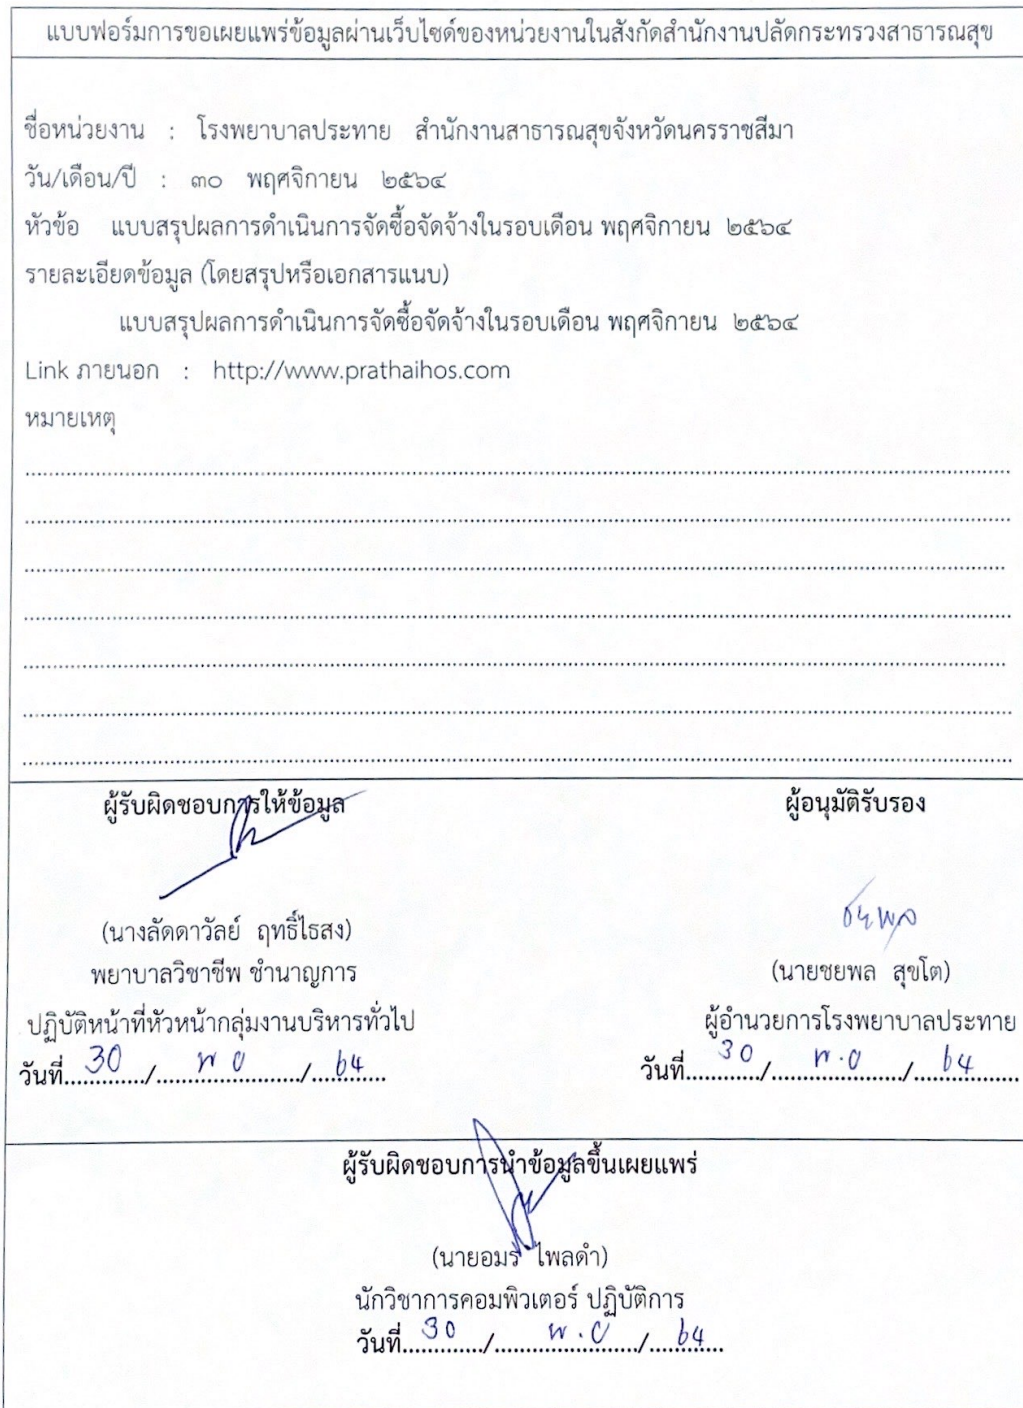 แบบฟอร์มการขอเผยแพร่ข้อมูลผ่านเว็บไซด์ของหน่วยงานในสังกัดสำนักงานปลัดกระทรวงสาธารณสุข
ชื่อหน่วยงาน : โรงพยาบาลประทาย สำนักงานสาธารณสุขจังหวัดนครราชสีมา
วัน/เดือน/ปี : ๓๐ พฤศจิกายน ๒๕๖๔
หัวข้อ แบบสรุปผลการดำเนินการจัดซื้อจัดจ้างในรอบเดือน พฤศจิกายน ๒๕๖๔
รายละเอียดข้อมูล (โดยสรุปหรือเอกสารแนบ)
แบบสรุปผลการดำเนินการจัดซื้อจัดจ้างในรอบเดือน พฤศจิกายน ๒๕๖๔
Link ภายนอก : http://www.prathaihos.com
หมายเหตุ
ผู้รับผิดชอบการให้ข้อมูล ผู้อนุมัติรับรอง
ชยพล
(นางลัดดาวัลย์ ฤทธิ์ไธสง) (นายชยพล สุขโต)
พยาบาลวิชาชีพ ชำนาญการ ผู้อำนวยการโรงพยาบาลประทาย
ปฏิบัติหน้าที่หัวหน้ากลุ่มงานบริหารทั่วไป
วันที่ 30 / พ ย / 64 วันที่ 30 / พ.ย / 64
ผู้รับผิดชอบการนำข้อมูลขึ้นเผยแพร่
(นายอมร ไพลดำ)
นักวิชาการคอมพิวเตอร์ ปฏิบัติการ
วันที่ 30 / พ.ย / 64